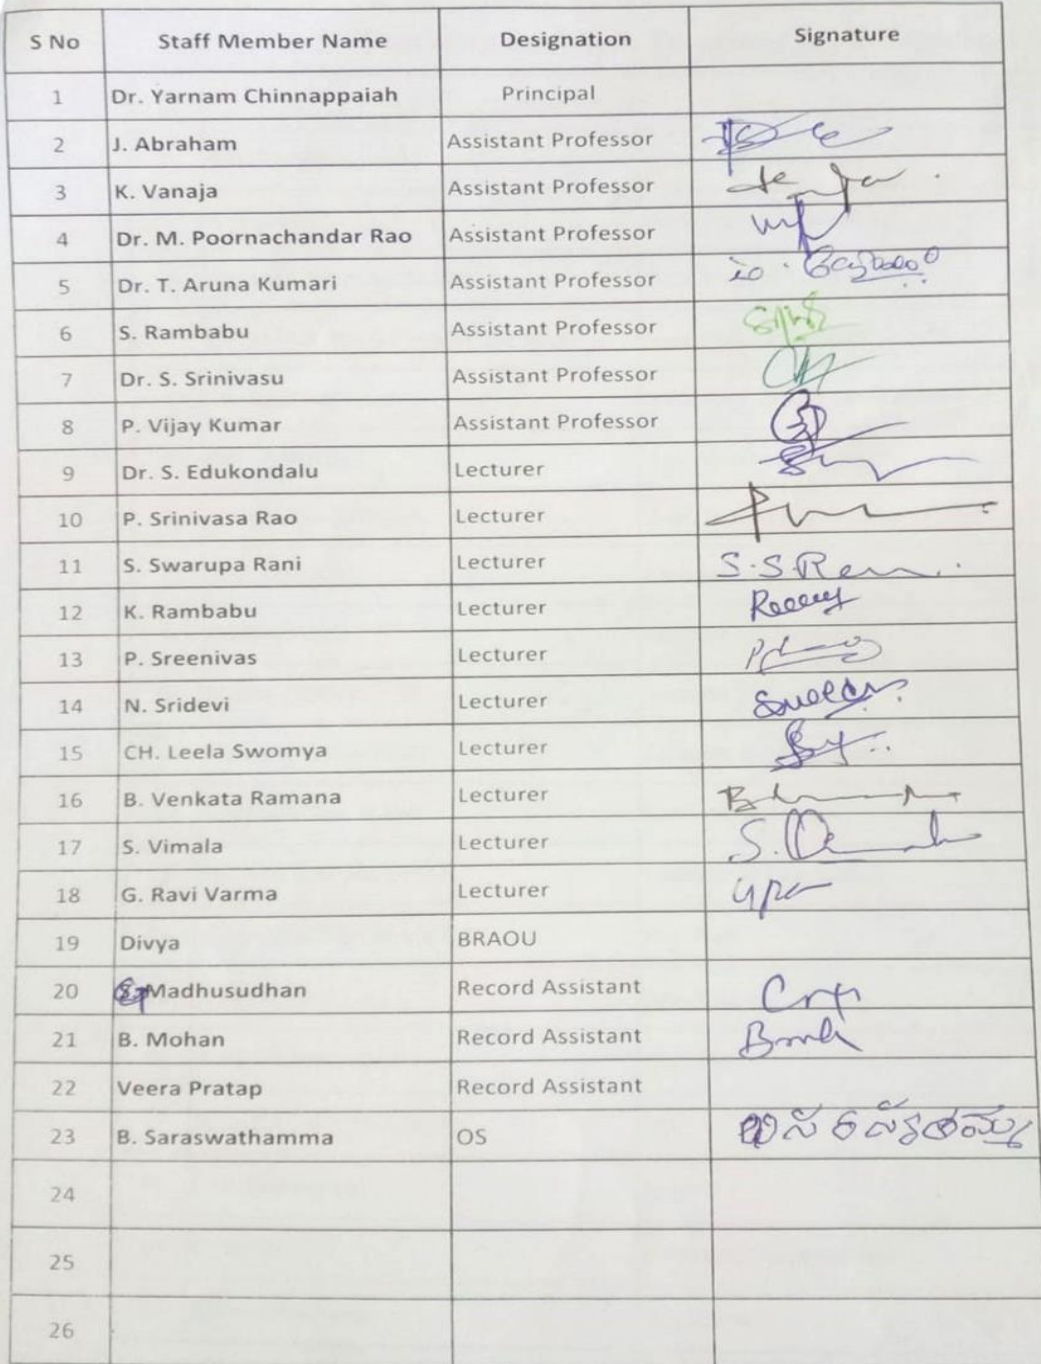 S No Staff Member Name Designation Signature
1 Dr. Yarnam Chinnappaiah Principal
2 J. Abraham Assistant Professor
3 K. Vanaja Assistant Professor
4 Dr. M. Poornachandar Rao Assistant Professor
5 Dr. T. Aruna Kumari Assistant Professor
6 S. Rambabu Assistant Professor
7 Dr. S. Srinivasu Assistant Professor
8 P. Vijay Kumar Assistant Professor
9 Dr. S. Edukondalu Lecturer
10 P. Srinivasa Rao Lecturer
11 S. Swarupa Rani Lecturer S.S.Rani
12 K. Rambabu Lecturer
13 P. Sreenivas Lecturer
14 N. Sridevi Lecturer
15 CH. Leela Swomya Lecturer
16 B. Venkata Ramana Lecturer
17 S. Vimala Lecturer
18 G. Ravi Varma Lecturer
19 Divya BRAOU
20 Madhusudhan Record Assistant
21 B. Mohan Record Assistant
22 Veera Pratap Record Assistant
23 B. Saraswathamma OS
24
25
26